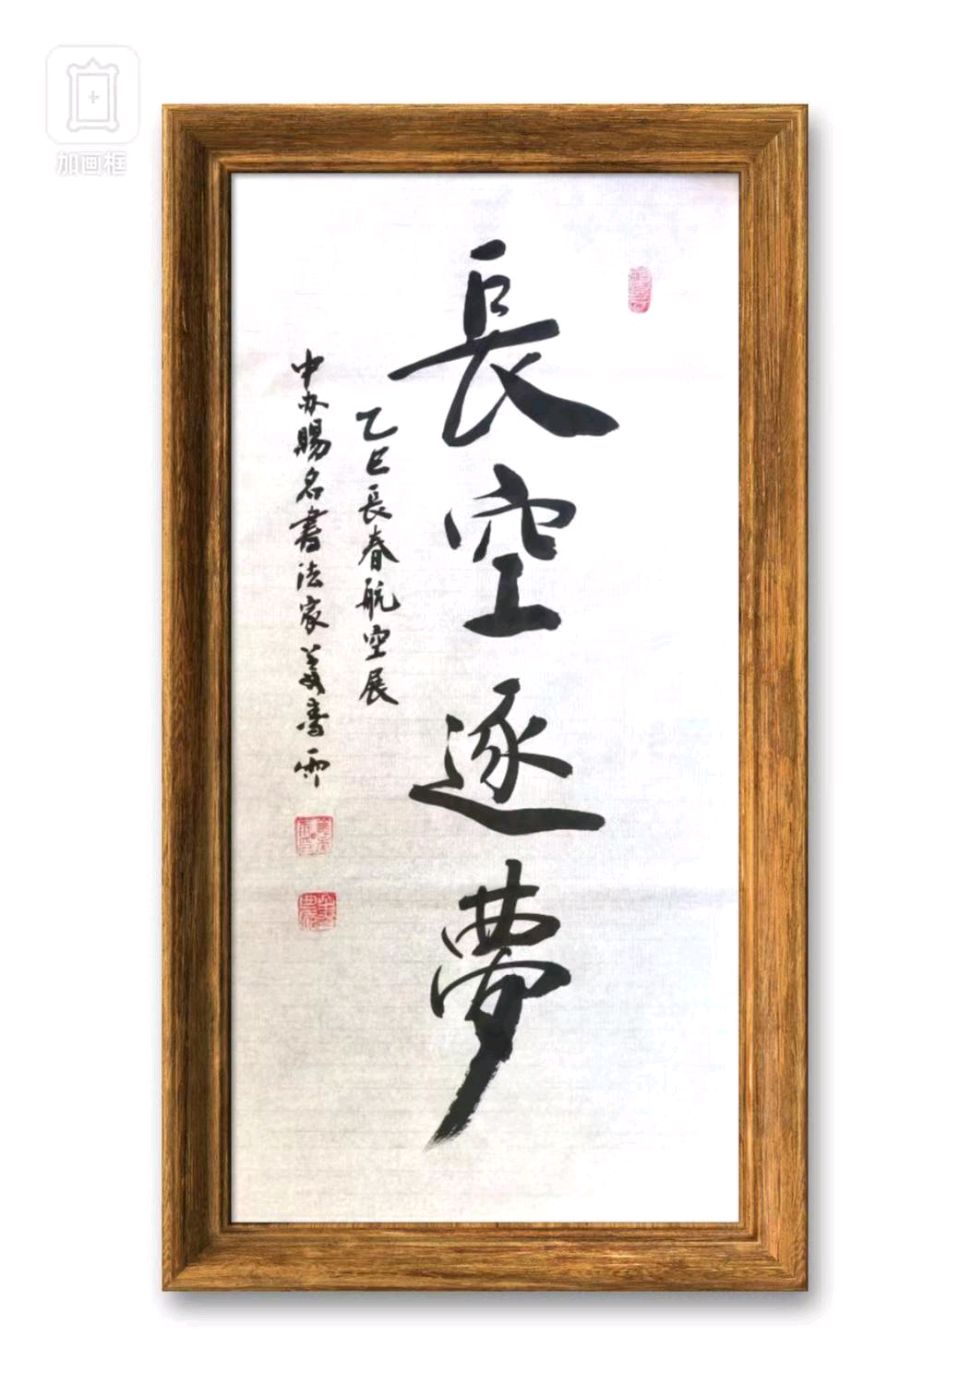 長空逐夢
乙巳長春航空展
中办賜名書法家姜春雨
加画框